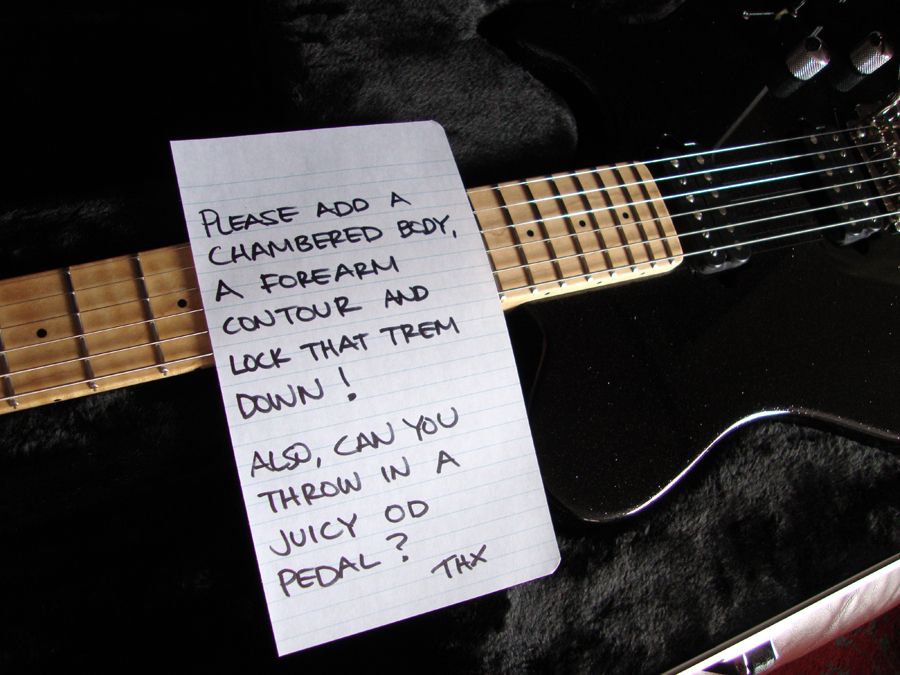 PLEASE ADD A
CHAMBERED BODY,
A FOREARM
CONTOUR AND
LOCK THAT TREM
DOWN!
ALSO, CAN YOU
THROW IN A
JUICY OD
PEDAL?
THX